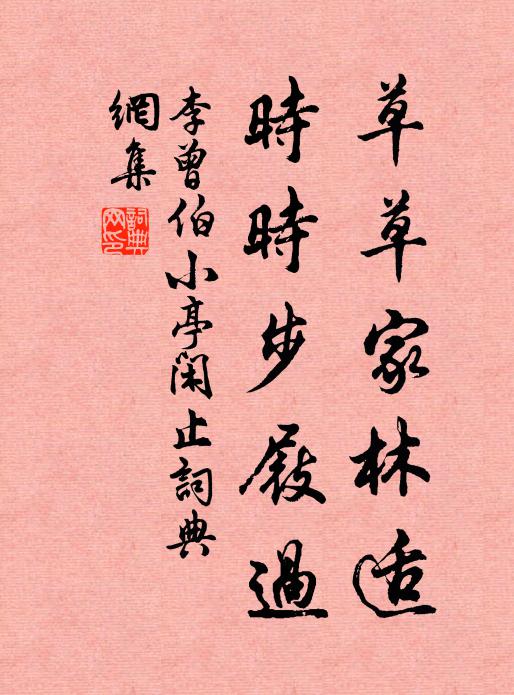 草草家林适
時時步屐過
李曾伯小亭閑止詞典
網集
詞典網印